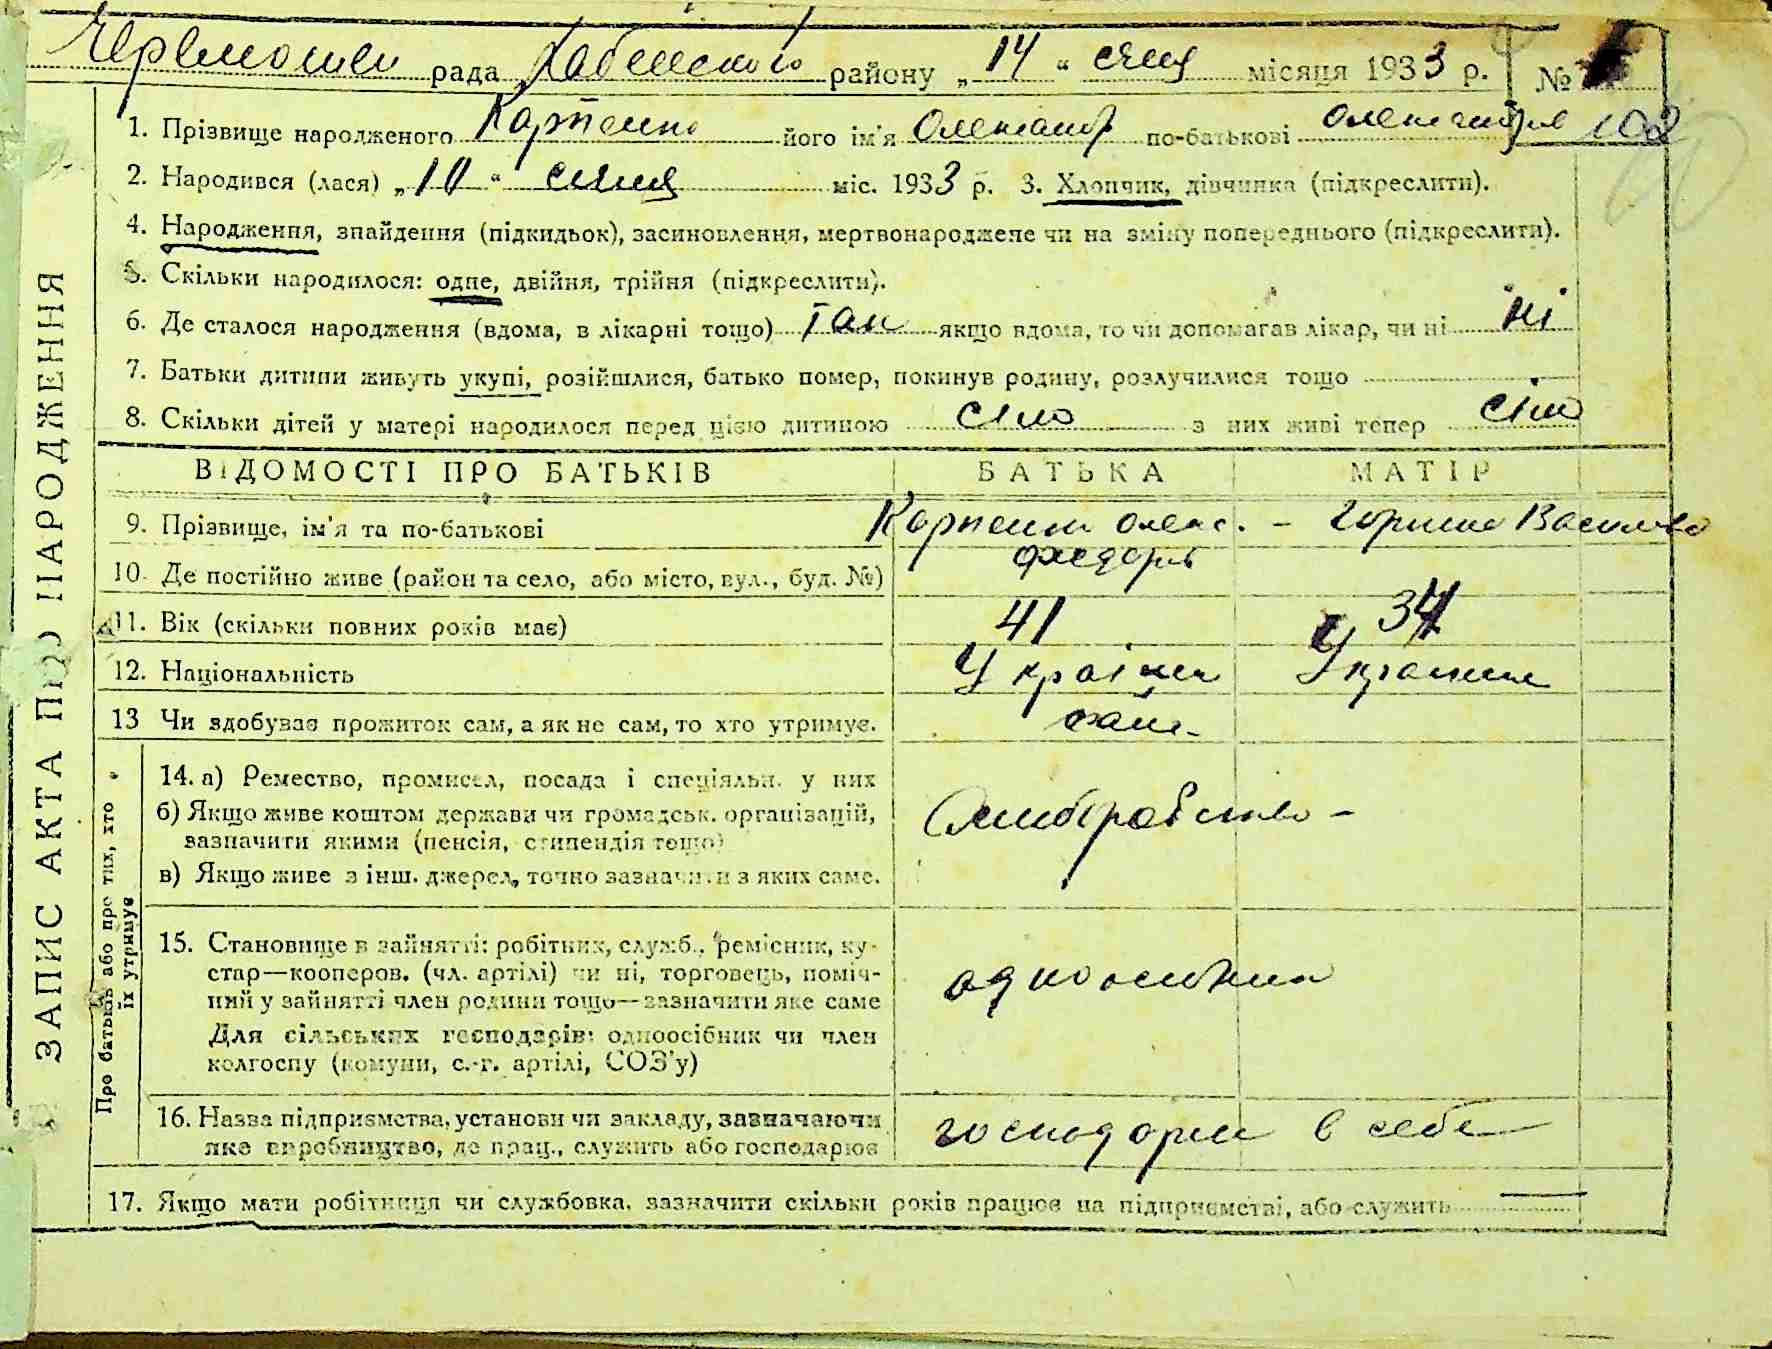 рада району „14“ січня місяця 1933 р. №
1. Прізвище народженого Карпенко його ім'я Олександр по-батькові 102
2. Народився (лася) „10“ січня міс. 1933 р. 3. Хлопчик, дівчинка (підкреслити).
4. Народження, знайдення (підкидьок), засиновлення, мертвонароджене чи на зміну попереднього (підкреслити).
5. Скільки народилося: одне, двійня, трійня (підкреслити).
6. Де сталося народження (вдома, в лікарні тощо) так якщо вдома, то чи допомагав лікар, чи ні ні
7. Батьки дитини живуть укупі, розійшлися, батько помер, покинув родину, розлучилися тощо
8. Скільки дітей у матері народилося перед цією дитиною сімо з них живі тепер сімо
ВІДОМОСТІ ПРО БАТЬКІВ БАТЬКА МАТІР
9. Прізвище, ім'я та по-батькові Карпенко Олекс. –
10. Де постійно живе (район та село, або місто, вул., буд. №)
11. Вік (скільки повних років має) 41 34
12. Національність
13 Чи здобуває прожиток сам, а як не сам, то хто утримує.
14. а) Ремество, промисел, посада і спеціяльн. у них
б) Якщо живе коштом держави чи громадськ. організацій,
зазначити якими (пенсія, стипендія тощо)
в) Якщо живе з інш. джерел, точно зазначити з яких саме.
15. Становище в зайнятті: робітник, служб., ремісник, ку-
стар—кооперов. (чл. артілі) чи ні, торговець, поміч-
ний у зайнятті член родини тощо—зазначити яке саме
Для сільських господарів: одноосібник чи член
колгоспу (комуни, с.-г. артілі, СОЗ'у)
одноосібник
16. Назва підприємства, установи чи закладу, зазначаючи
яке виробництво, де прац., служить або господарює
в себе
17. Якщо мати робітниця чи службовка, зазначити скільки років працює на підприємстві, або служить
ЗАПИС АКТА ПРО НАРОДЖЕННЯ
Про батьків або про тих, хто
їх утримує